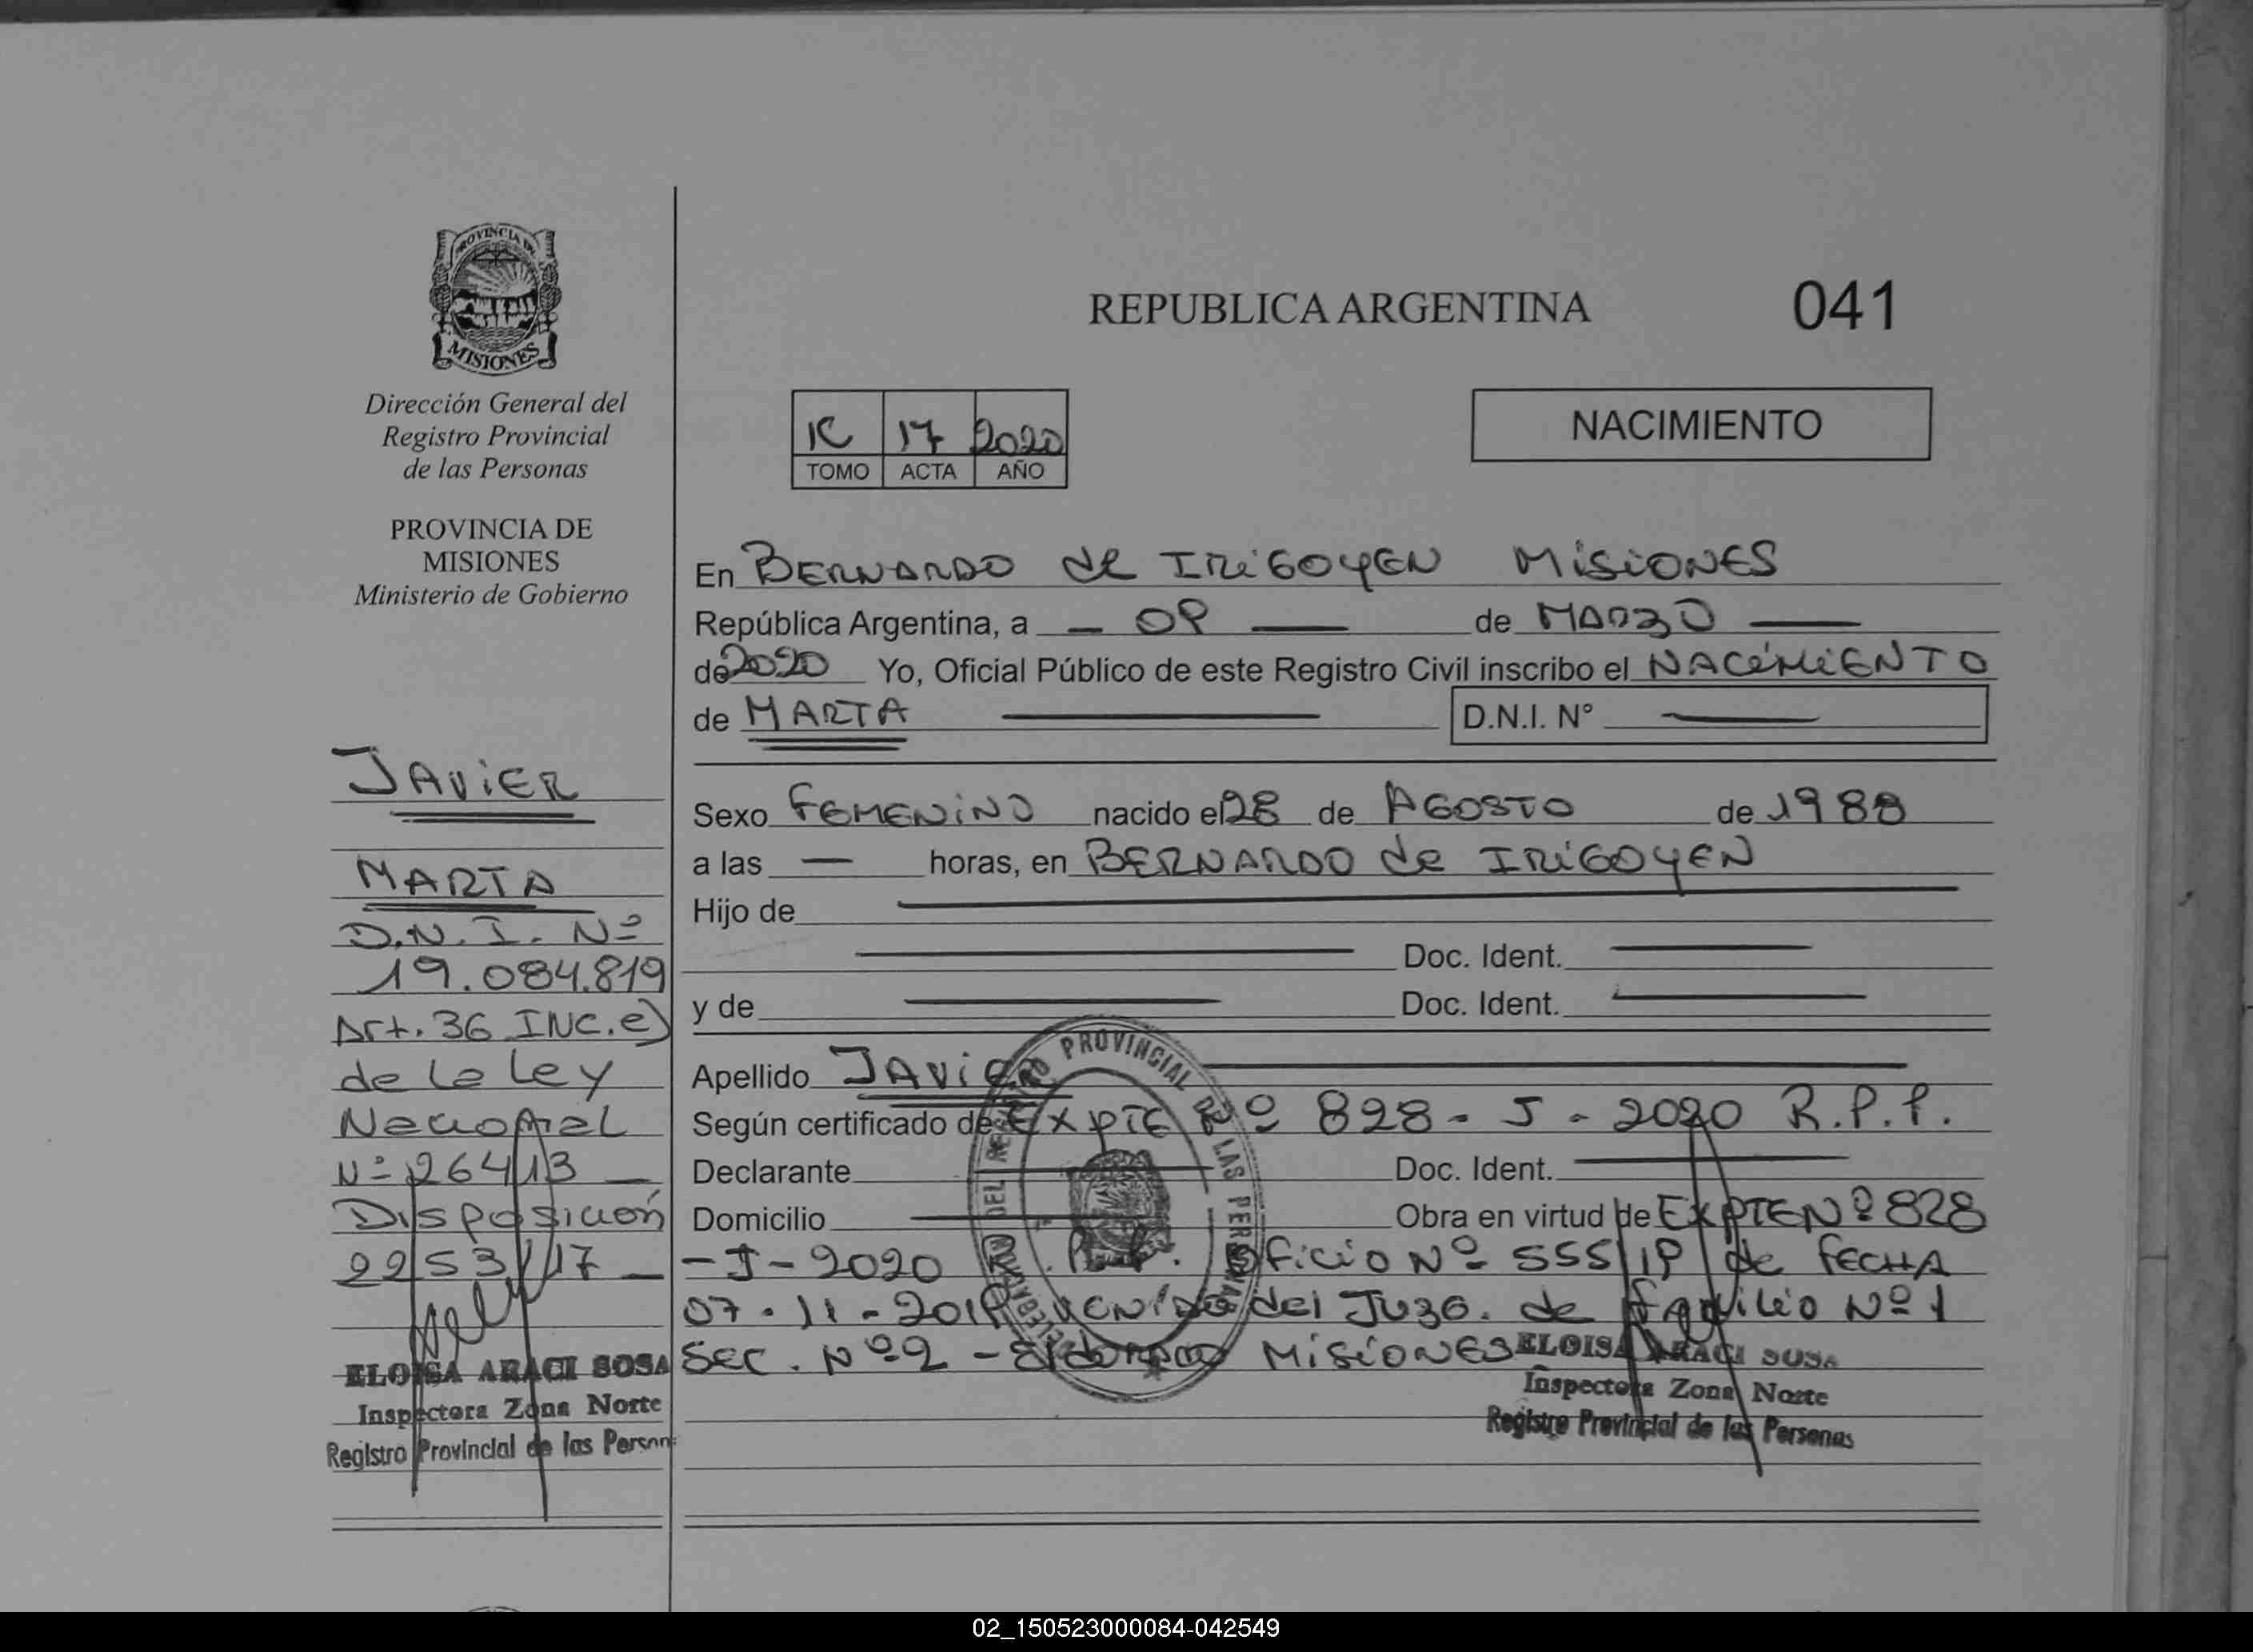 PROVINCIA DE
MISIONES
Dirección General del
Registro Provincial
de las Personas
PROVINCIA DE
MISIONES
Ministerio de Gobierno
JAViER
MARTA
D.N.I. Nº
19.084.819
Art. 36 INC. e)
de la Ley
Nacional
Nº 26413
Disposición
2253/17
ELOISA ARACI SOSA
Inspectora Zona Norte
Registro Provincial de las Person
REPUBLICA ARGENTINA
041
1C 17 2020
TOMO ACTA AÑO
NACIMIENTO
En BERNARDO de IRiGOYEN MiSiONES
República Argentina, a - 09 - de MARZO
de 2020 Yo, Oficial Público de este Registro Civil inscribo el NACiMiENTO
de MARTA D.N.I. N°
Sexo FEMENiNO nacido el 28 de AGOSTO de 1988
a las — horas, en BERNARDO de IRiGOYEN
Hijo de
Doc. Ident.
y de Doc. Ident.
Apellido JAViER
Según certificado de EXPTE Nº 828 - J - 2020 R.P.P.
Declarante Doc. Ident.
Domicilio Obra en virtud de EXPTE Nº 828
- J - 2020 R.P.P. Oficio Nº 555/19 de FECHA
07 - 11 - 2019 VENido del JUZG. de Familia Nº 1
SEC. Nº 2 - Eldorado MiSiONES
ELOISA ARACI SOSA
Inspectora Zona Norte
Registro Provincial de las Personas
PROVINCIAL DE LAS PERSONAS
DEL REGISTRO
02_150523000084-042549